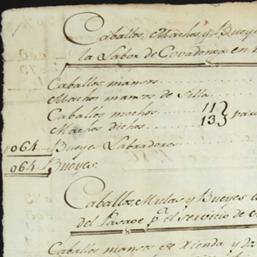 Caballos, Machos, y Bueyes
la Labor de Covadonga en
Caballos mansos
Machos mansos de Silla
Caballos mochos 11
Machos dichos 13 para
1064 Bueyes Labradores
064 Bueyes
Caballos, Mulas y Bueyes
del Pasage pa. el servicio de
Caballos mansos de Rienda y de